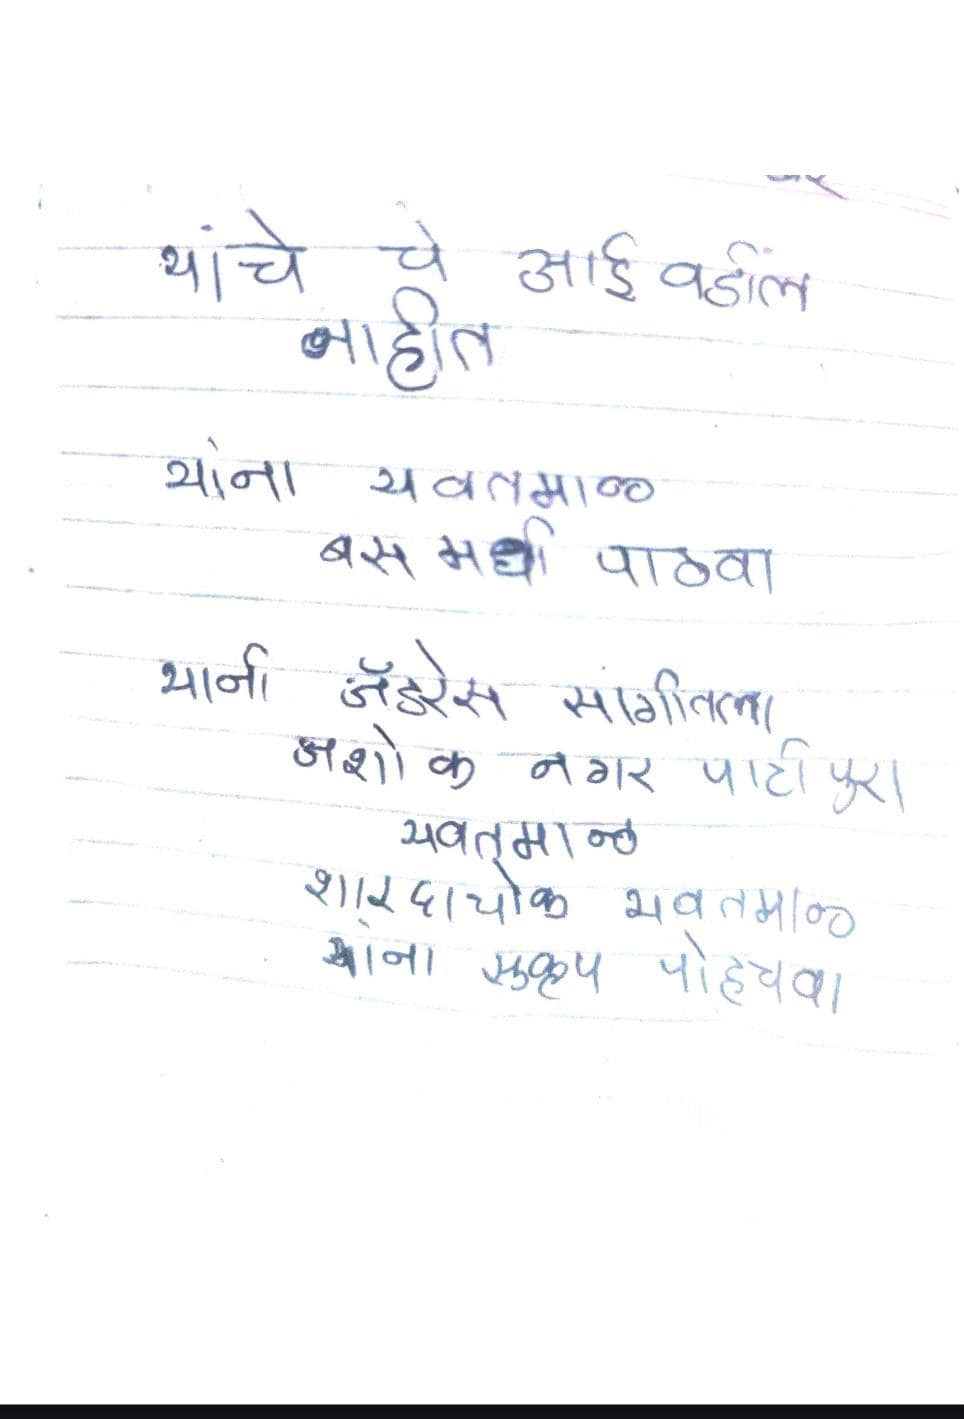 यांचे चे आई वडील
नाहीत
यांना यवतमाळ
बस मधी पाठवा
यानी अॅडरेस सांगीतला
अशोक नगर पाटीपुरा
यवतमाळ
शारदा चोक यवतमाळ
यांना सुकृप पोहचवा